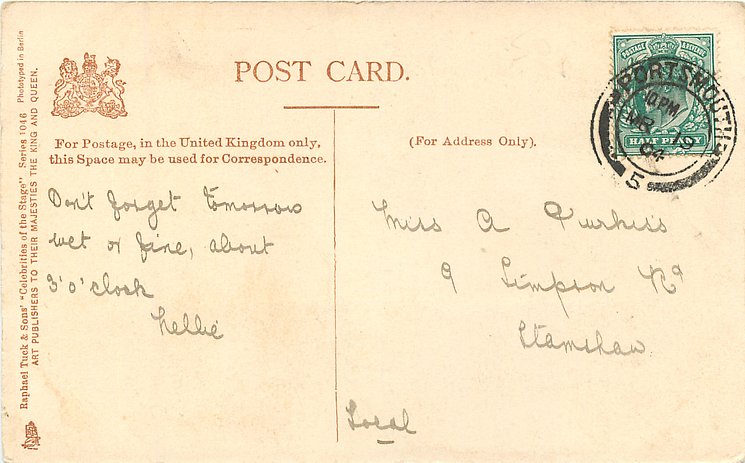 POST CARD.
For Postage, in the United Kingdom only,
this Space may be used for Correspondence.
(For Address Only).
Don't forget tomorrow
wet or fine, about
3 o'clock
Nellie
Miss A Purkiss
9 Simpson Rd
Stamshaw
Local
Raphael Tuck & Sons' "Celebrities of the Stage" Series 1046 Phototyped in Berlin
ART PUBLISHERS TO THEIR MAJESTIES THE KING AND QUEEN.
POSTAGE & REVENUE
HALF PENNY
PORTSMOUTH
10 PM
MR 19
04
5